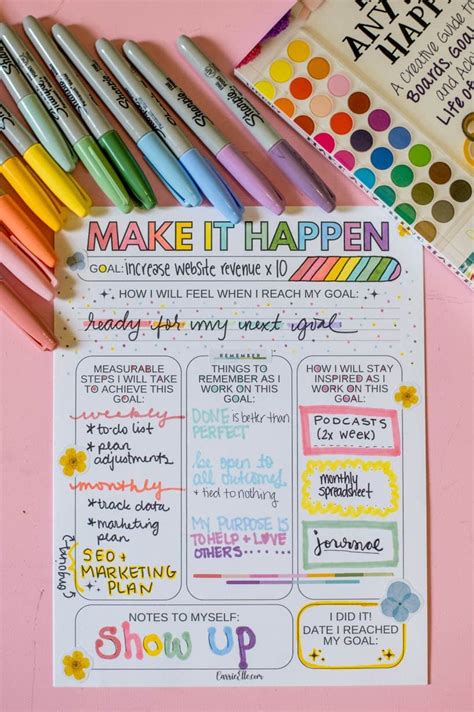 Sharpie
Sharpie
Sharpie
Sharpie
Sharpie
ANY
HAPP
A Creative Guide to
Boards, Goal
and
Life of
MAKE IT HAPPEN
GOAL: increase website revenue x 10
HOW I WILL FEEL WHEN I REACH MY GOAL:
ready for my next goal
REMEMBER
MEASURABLE
STEPS I WILL TAKE
TO ACHIEVE THIS
GOAL:
weekly
* to do list
* plan
adjustments
monthly
* track data
* marketing
plan
ongoing
SEO +
MARKETING
PLAN
THINGS TO
REMEMBER AS I
WORK ON THIS
GOAL:
DONE is better than
PERFECT
be open to
all outcomes
+ tied to nothing
MY PURPOSE IS
TO HELP + LOVE
OTHERS....
HOW I WILL STAY
INSPIRED AS I
WORK ON THIS
GOAL:
PODCASTS
(2x week)
monthly
spreadsheet
journal
NOTES TO MYSELF:
SHOW UP
CarrieElle.com
I DID IT!
DATE I REACHED
MY GOAL: